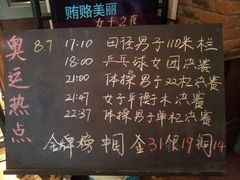 贿赂美丽
女士之夜
奥运热点
87 17:10 田径男子110米栏
18:00 乒乓球女团决赛
21:00 体操男子双杠决赛
21:47 女子平衡木决赛
22:37 体操男子单杠决赛
金牌榜 中国 金31银19铜14